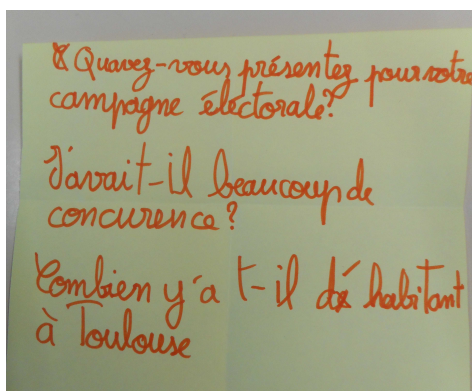 Quavez-vous présentez pour votre
campagne électorale?
J'avait-il beaucoup de
concurence?
Combien y'a t-il d'habitant
à Toulouse